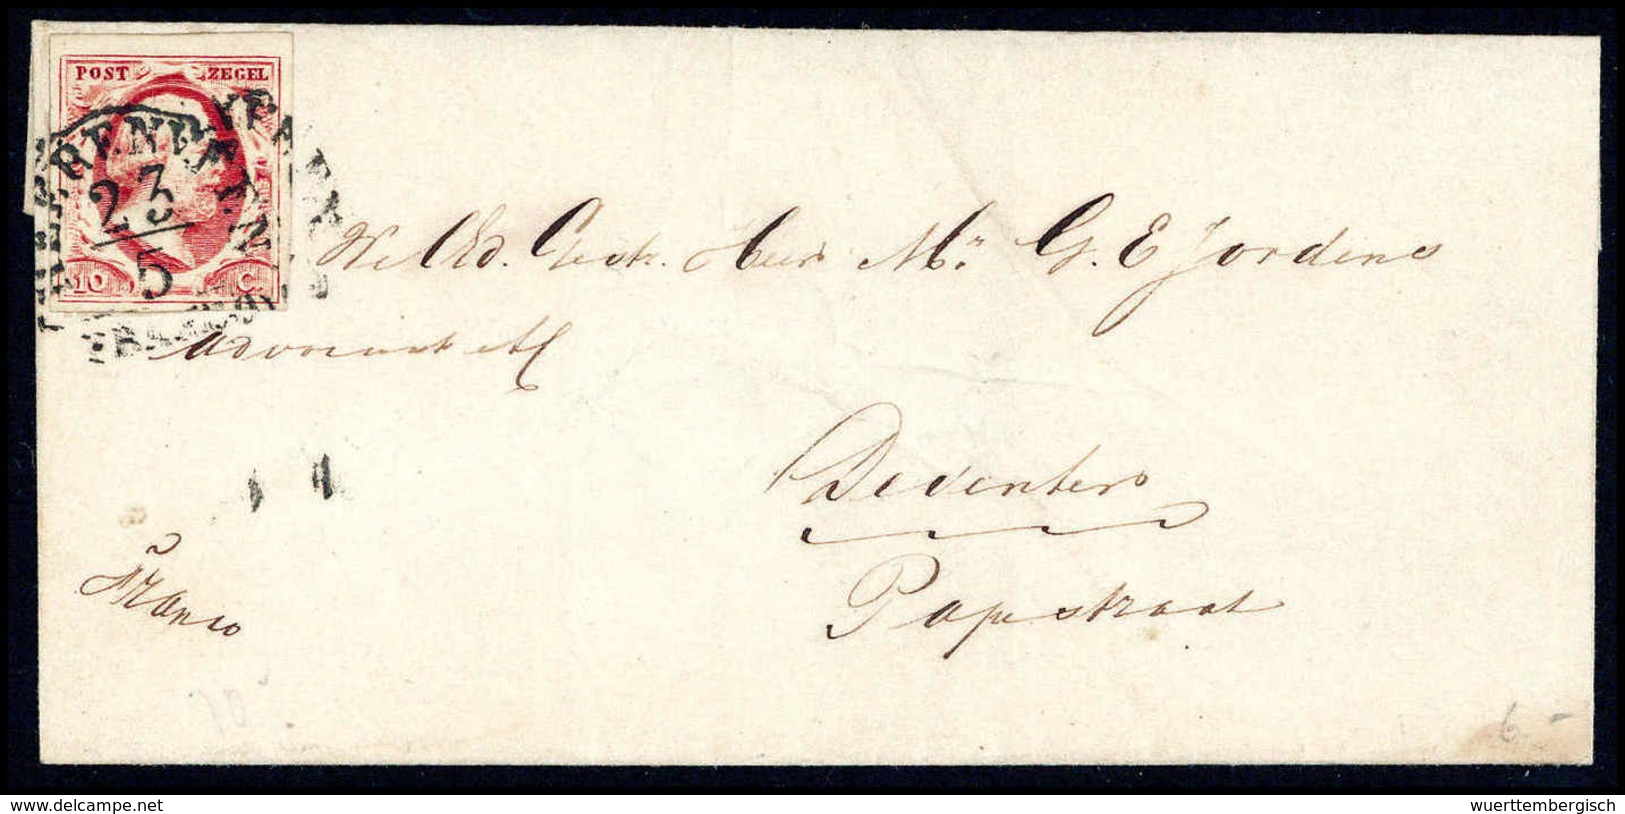 POST ZEGEL
HEERENVEEN
23
5
FRANCO
10 C.
Heer Mr. G. E. Jordens
Advocaat
Deventer
Papestraat
Franco
6.-
www.delcampe.net
wuerttembergisch